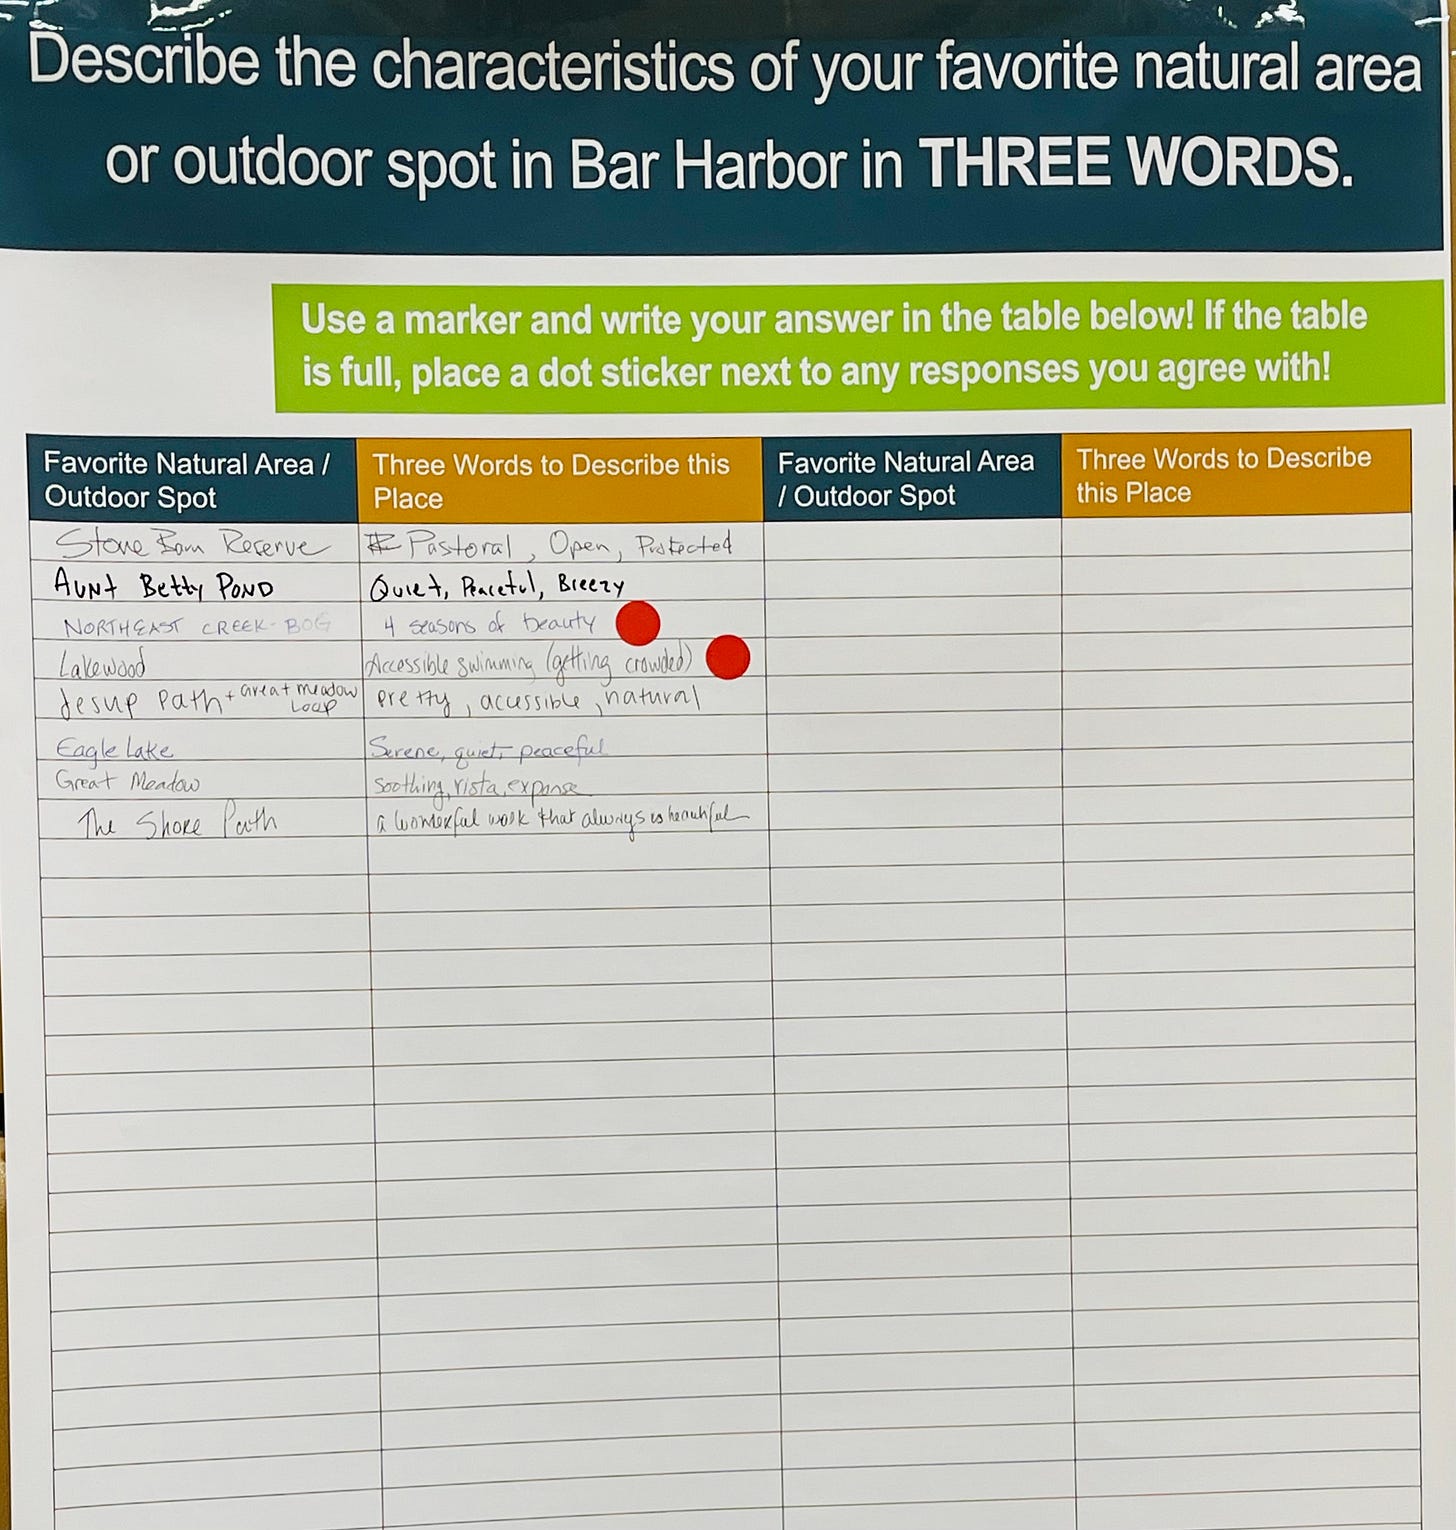 Describe the characteristics of your favorite natural area
or outdoor spot in Bar Harbor in THREE WORDS.
Use a marker and write your answer in the table below! If the table
is full, place a dot sticker next to any responses you agree with!
Favorite Natural Area /
Outdoor Spot
Three Words to Describe this
Place
Favorite Natural Area
/ Outdoor Spot
Three Words to Describe
this Place
Stone Barn Reserve
Pastoral, Open, Protected
Aunt Betty Pond
Quiet, Peaceful, Breezy
NORTHEAST CREEK-BOG
4 seasons of beauty
Lakewood
Accessible swimming (getting crowded)
Jesup Path + Great meadow
Loop
pretty, accessible, natural
Eagle Lake
Serene, quiet, peaceful
Great Meadow
Soothing, vista, expanse
The Shore Path
a wonderful walk that always is beautiful